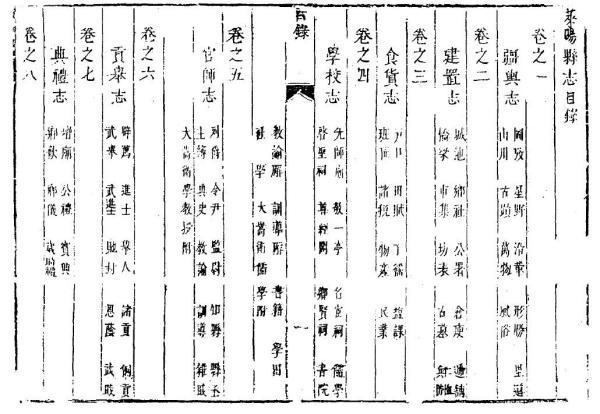 萊陽縣志目錄
卷之一
疆輿志
圖攷 星野 沿革 形勝 里
山川 古蹟 萬物 風俗
卷之二
建置志
城池 鄉社 公署 倉庾
橋梁 市集 坊表 古墓
卷之三
食貨志
戶口 田賦 丁徭 鹽課
諸稅 物產 民業
卷之四
學校志
先師廟 敬一亭 名宦祠 儒學
啓聖祠 尊經閣 鄉賢祠 書院
目錄
教諭廨 訓導廨 書籍 學田
社學 大嵩衛儒學附
卷之五
官師志
令尹 監尉 知縣 縣丞
主簿 典史 教諭 訓導 雜職
大嵩衛學教授附
卷之六
貢舉志
辟薦 進士 舉人 諸貢 例貢
武舉 武進士 貤封 恩廕 武職
卷之七
典禮志
壇廟 公禮 賓興
鄉飲 鄉儀
卷之八